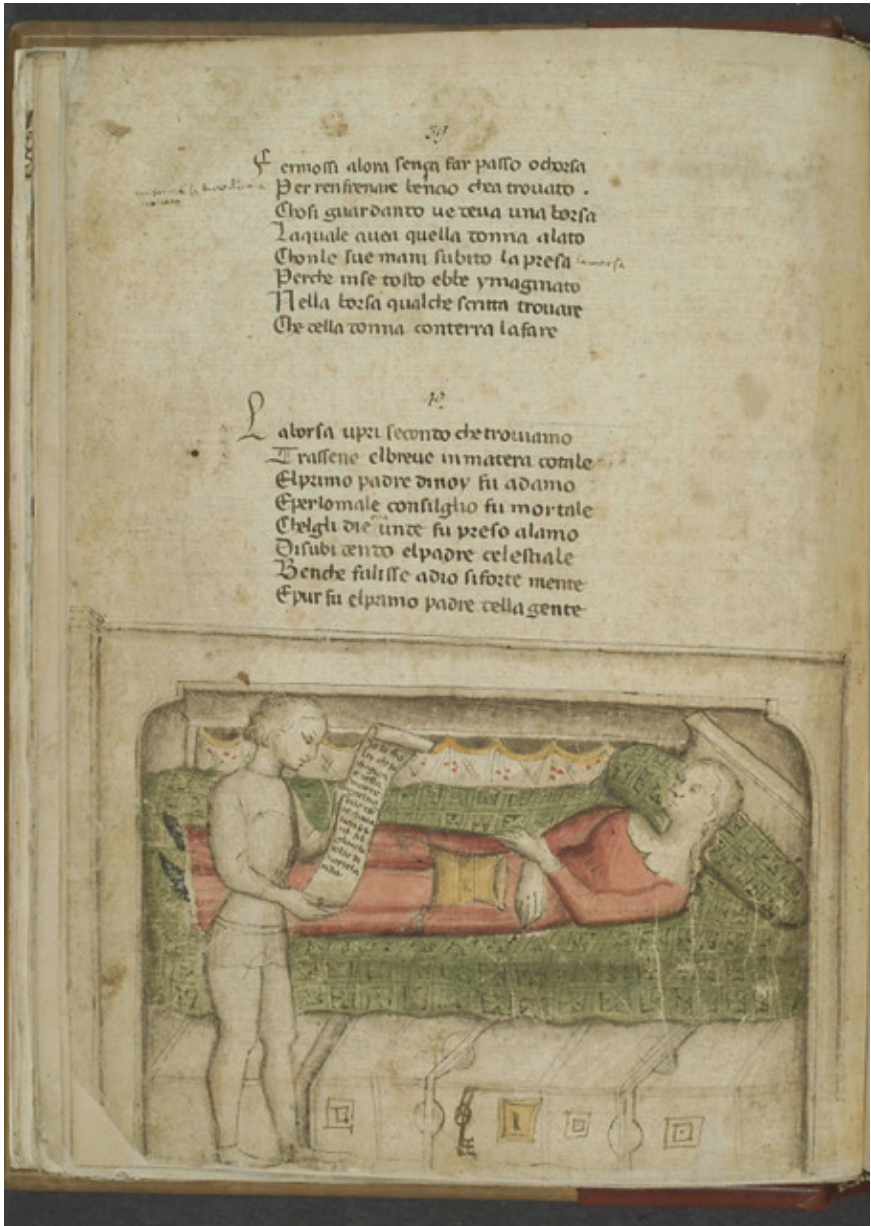 39
Fermossi alora sença far passo o chorsa
Per renfrenare lencio chea trouato .
Chosi guardanto ue teua una borsa
Laquale auea quella tonna alato
Chonle sue mani subito la presa la morsa
Perche inse tosto ebbe ymaginato
Nella borsa qualche scritta trouare
Che cella tonna conterra lafare
40
La borsa upri seconto che trouiamo
Trassene elbreue inmatera cotale
Elprimo padre dinoy fu adamo
Eperlomale consilglio fu mortale
Chelgli die unte fu preso alamo
Disubitento elpadre celestiale
Benche falisse adio siforte mente
Epur fu elprimo padre tella gente